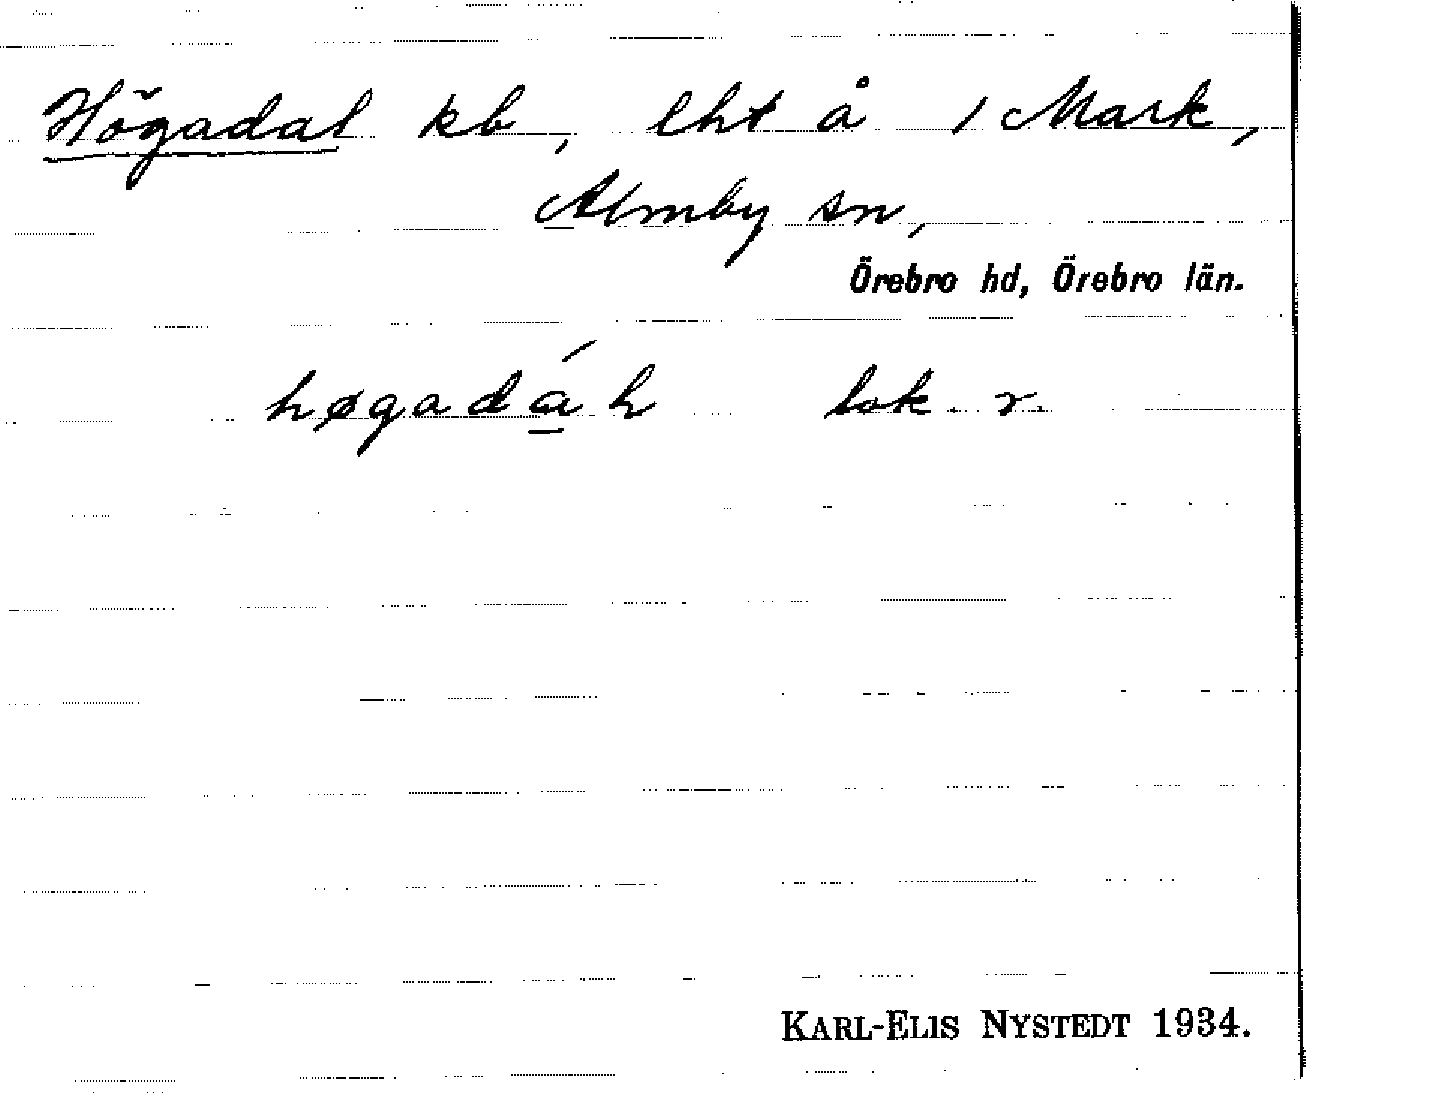 Högadal kb, lht å 1 Mark,
Almby sn,
Örebro hd, Örebro län.
høgadá̱h lok. r.
KARL-ELIS NYSTEDT 1934.